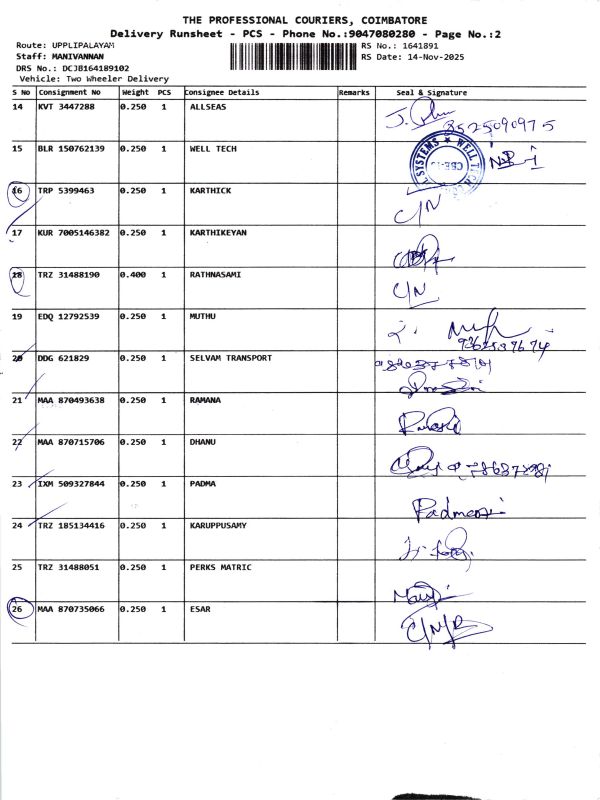 THE PROFESSIONAL COURIERS, COIMBATORE
Delivery Runsheet - PCS - Phone No.:9047080280 - Page No.:2
Route: UPPLIPALAYAM
RS No.: 1641891
Staff: MANIVANNAN
RS Date: 14-Nov-2025
DRS No.: DCJB164189102
Vehicle: Two Wheeler Delivery
S No Consignment No Weight PCS Consignee Details Remarks Seal & Signature
14 KVT 3447288 0.250 1 ALLSEAS
8525090975
15 BLR 150762139 0.250 1 WELL TECH
16 TRP 5399463 0.250 1 KARTHICK C/N
17 KUR 7005146382 0.250 1 KARTHIKEYAN
18 TRZ 31488190 0.400 1 RATHNASAMI C/N
19 EDQ 12792539 0.250 1 MUTHU
20 DDG 621829 0.250 1 SELVAM TRANSPORT
21 MAA 870493638 0.250 1 RAMANA
22 MAA 870715706 0.250 1 DHANU
23 IXM 509327844 0.250 1 PADMA
24 TRZ 185134416 0.250 1 KARUPPUSAMY
25 TRZ 31488051 0.250 1 PERKS MATRIC
26 MAA 870735066 0.250 1 ESAR C/N/R